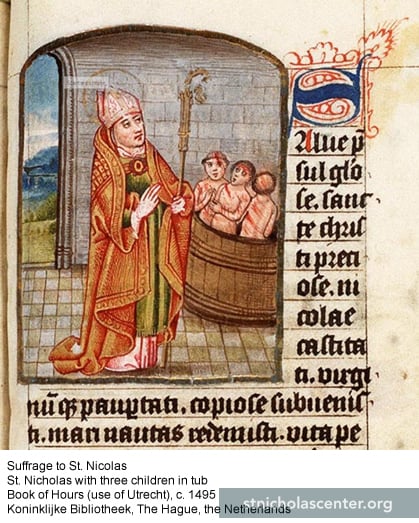 Salue p̄
sul glo
se. sanc
te chris
ti preti
ose. ni
colae
castita
ti. virgi
nūqȝ pauptati. copiose subuenis
ti. mari nautas redemisti. vita pe
Suffrage to St. Nicolas
St. Nicholas with three children in tub
Book of Hours (use of Utrecht), c. 1495
Koninklijke Bibliotheek, The Hague, the Netherlands
stnicholascenter.org